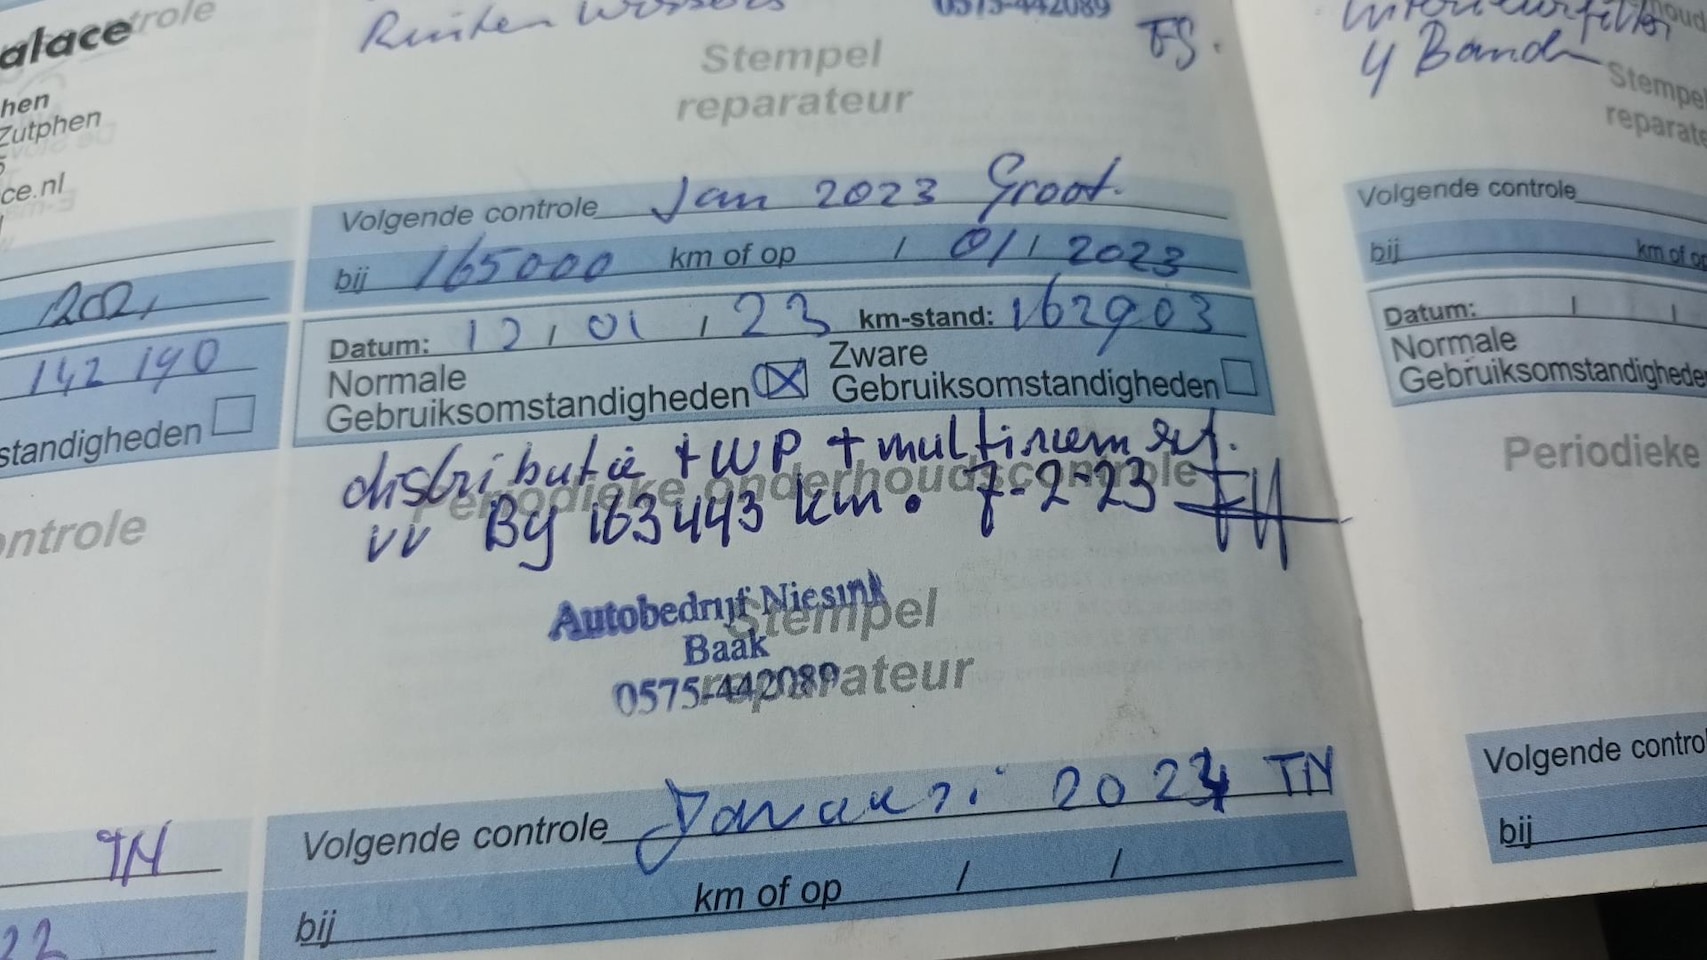 alace
ntrole
hen
Zutphen
ce.nl
202,
142 190
standigheden
ontrole
TN
22
Ruiten Wissers
0575-442089
FS.
Stempel
reparateur
Volgende controle Jan 2023 Groot.
bij 165000 km of op / 01 / 2023
Datum: 12 / 01 / 23 km-stand: 162903
Normale
Gebruiksomstandigheden
Zware
Gebruiksomstandigheden
distributie + WP + multiriem set.
Periodieke onderhoudscontrole
vv By 163443 km. 7-2-23
Autobedrijf Niesink
Baak
0575-442089
Stempel
reparateur
Volgende controle Januari 2024 TN
bij km of op / /
Interieurfilter
4 Band
Stempel
reparat
Volgende controle
bij km of op
Datum: / /
Normale
Gebruiksomstandighede
Periodieke
Volgende contro
bij